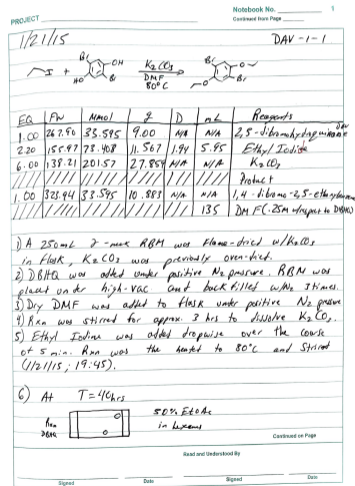 Notebook No. 1
PROJECT Continued From Page
1/21/15 DAV-1-1
I + Br OH HO Br K2CO3 DMF 80°C Br O O Br
EQ FW mmol g D mL Reagents
1.00 267.90 33.595 9.00 N/A N/A 2,5-dibromohydroquinone DAV
2.20 155.97 73.908 11.567 1.94 5.95 Ethyl Iodide
6.00 138.21 201.57 27.859 N/A N/A K2CO3
Product
1.00 323.94 33.595 10.883 N/A N/A 1,4-dibromo-2,5-
135 DMF (.25M w/respect to DBHQ)
1) A 250mL 2-neck RBN was flame-dried w/K2CO3
in flask, K2CO3 was previously oven-dried.
2) DBHQ was added under positive N2 pressure. RBN was
placed under high-vac and backfilled w/N2 3 times.
3) Dry DMF was added to flask under positive N2 pressure
4) Rxn was stirred for approx. 3 hrs to dissolve K2CO3.
5) Ethyl Iodide was added dropwise over the course
of 5 min. Rxn was the heated to 80°C and stirred
(1/21/15, 19:45).
6) At T=40hrs
50% EtOAc
Rxn in hexens
DBHQ
Continued on Page
Read and Understood By
Signed Date Signed Date